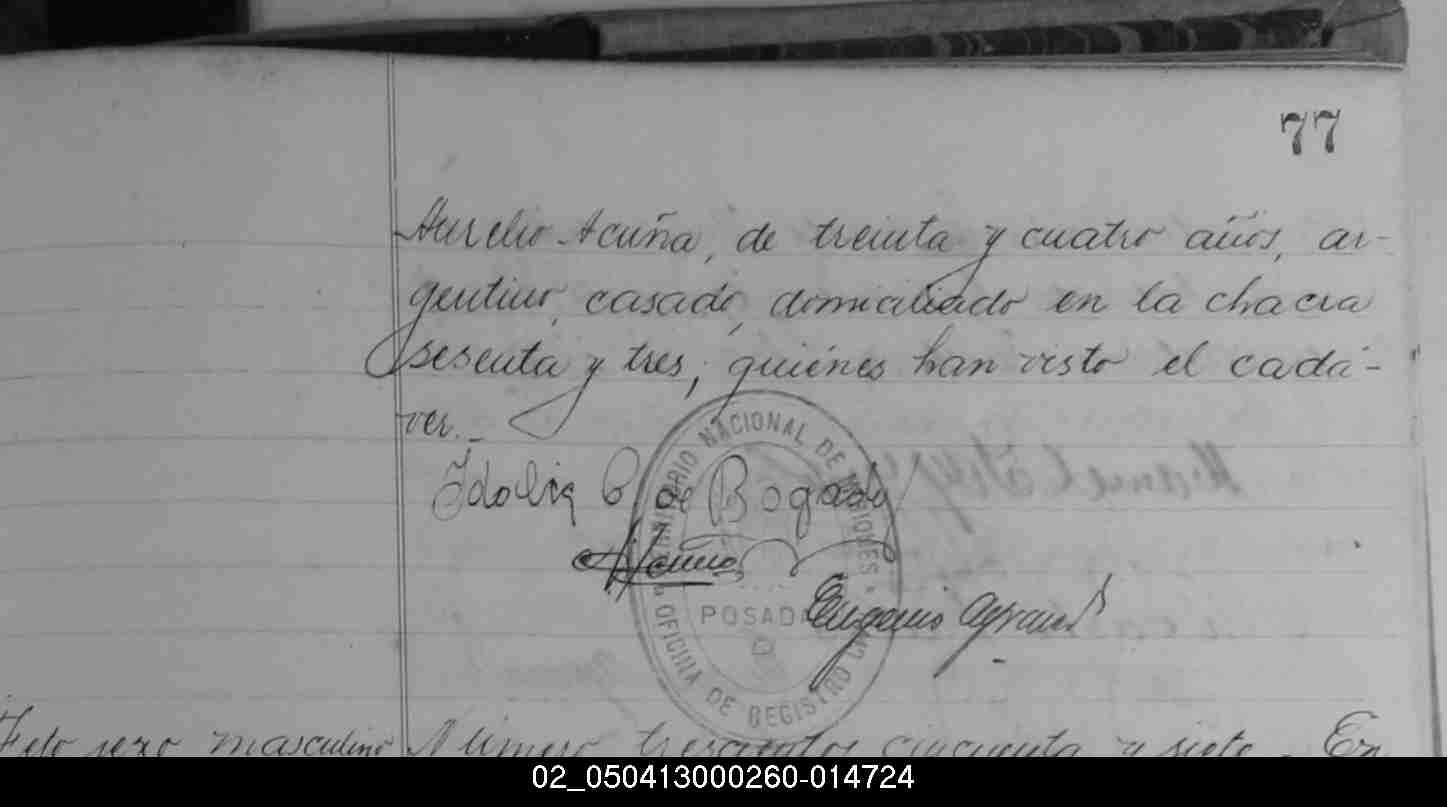 77
Aurelio Acuña, de treinta y cuatro años, ar-
gentino, casado, domiciliado en la chacra
sesenta y tres; quiénes han visto el cadá-
ver._
Idolia C. de Bogado
Acuña
Eugenio
TERRITORIO NACIONAL DE MISIONES
POSADAS
OFICINA DE REGISTRO CIVIL
Feto sexo masculino
Número trescientos cincuenta y siete. En
02_050413000260-014724